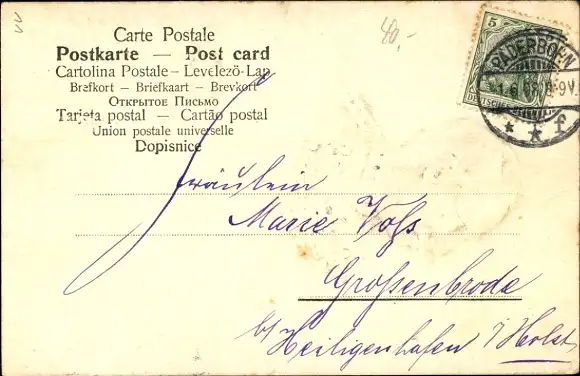 11
40,-
Carte Postale
Postkarte — Post card
Cartolina Postale – Levelezö-Lap
Brefkort – Briefkaart – Brevkort
Открытое Письмо
Tarjeta postal — Cartão postal
Union postale universelle
Dopisnice
5
DEUTSCHES
PADERBORN
8-9V.
* * f
Fräulein
Marie Voß
Großenbrode
b/ Heiligenhafen i/Holst.